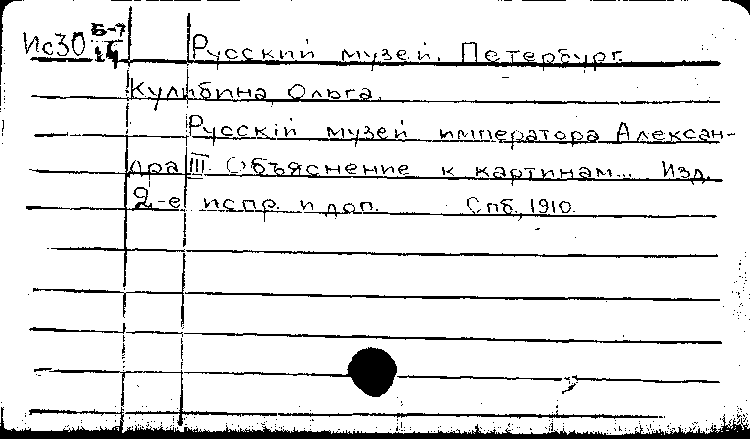 Ис30 Б-7/14
Русский музей. Петербург.
Кулибина Ольга.
Русскiй музей императора Алексан-
дра III. Объяснение к картинам... Изд.
2-е испр. и доп. Спб., 1910.